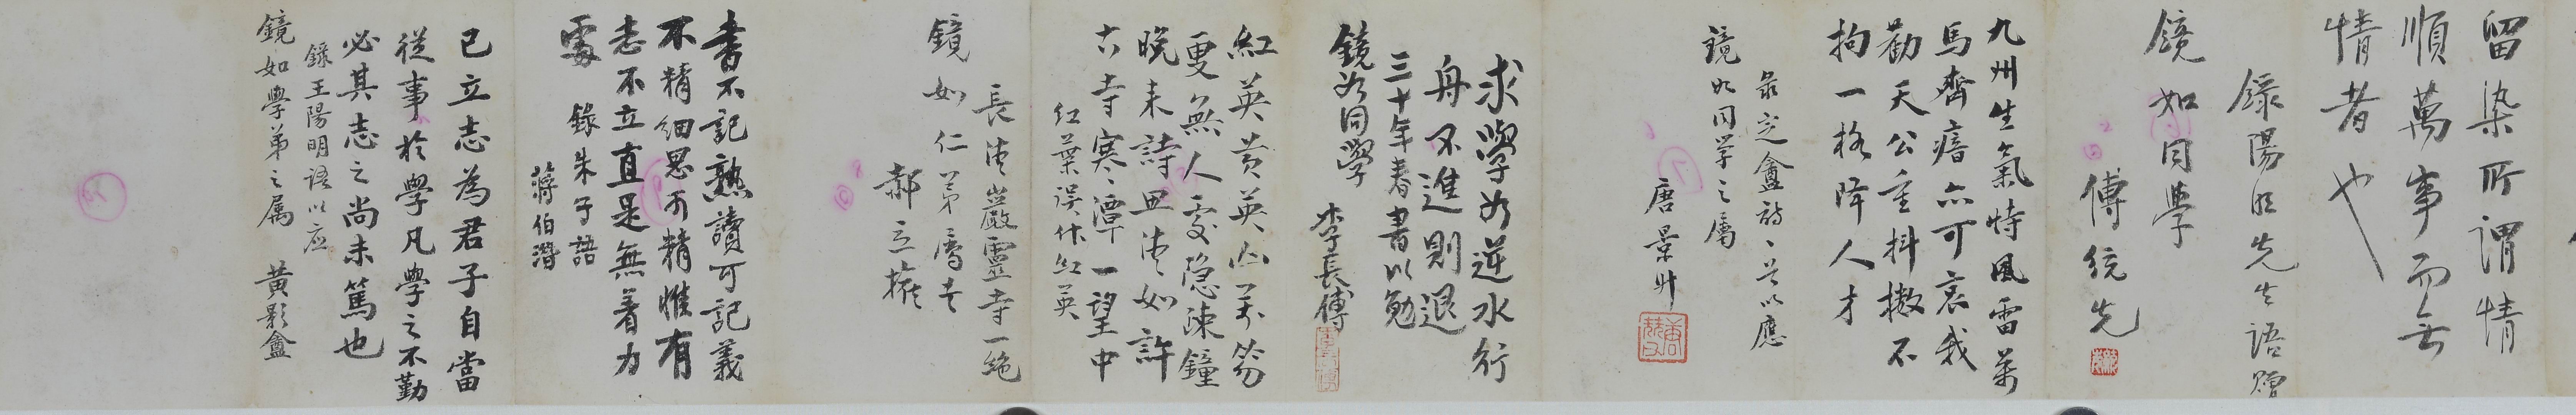 留染所謂情
順萬事而無
情者也
錄陽明先生語贈
鏡如同學
傅統先
九州生氣恃風雷萬
馬齊瘖亦可哀我
勸天公重抖擻不
拘一格降人才
录定盦詩以應
鏡如同學之屬
唐景升
求學如逆水行
舟不進則退
三十年春書以勉
鏡如同學
李長傅
紅英黃英山萬笏
更無人處隐疎鐘
晚來詩思清如許
古寺寒潭一望中
红葉误作红英
長清靈巖寺一绝
鏡如仁弟屬書
郝立權
書不記熟讀可記義
不精細思可精惟有
志不立直是無着力
處
錄朱子語
蔣伯潛
已立志為君子自當
從事於學凡學之不勤
必其志之尚未篤也
錄王陽明語以应
鏡如學弟之属
黃影盦